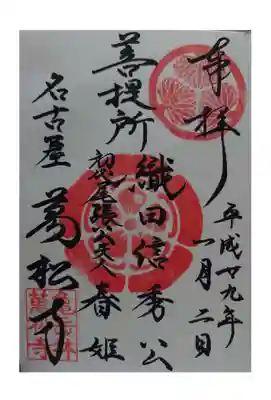 奉拝
平成廿九年
一月二日
菩提所
織田信秀公
初代尾張公夫人 春姫
名古屋 萬松寺
亀岳林
萬松寺